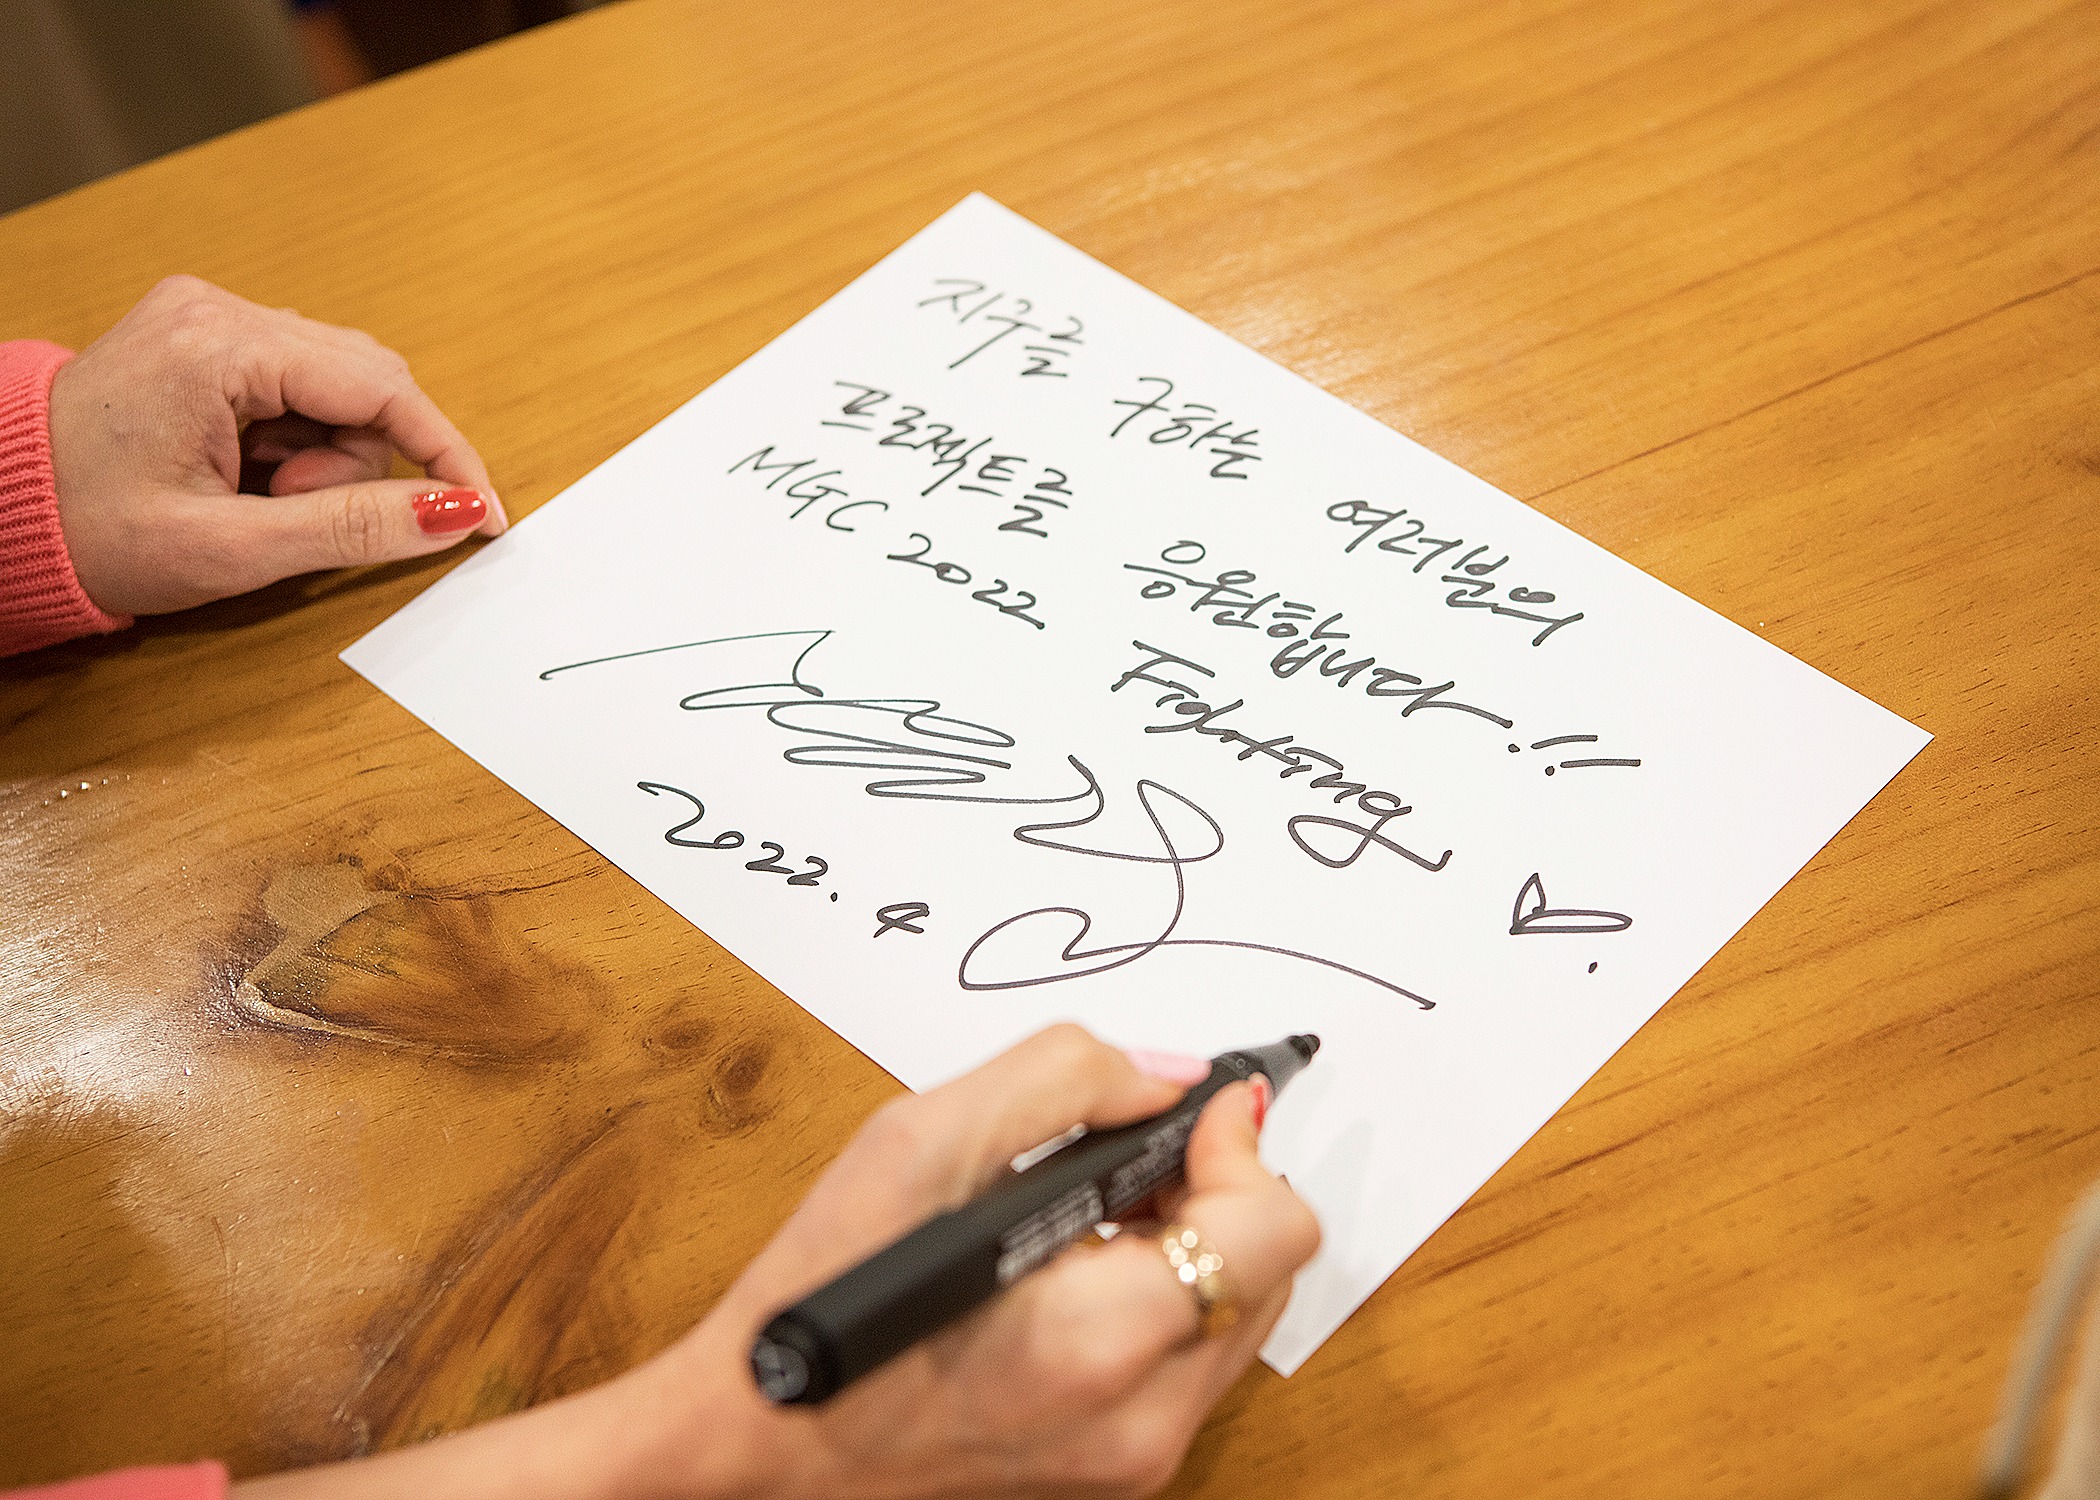 지구를 구하는 여러분의
프로젝트를 응원합니다!!
MGC 2022 Fighting
2022. 4